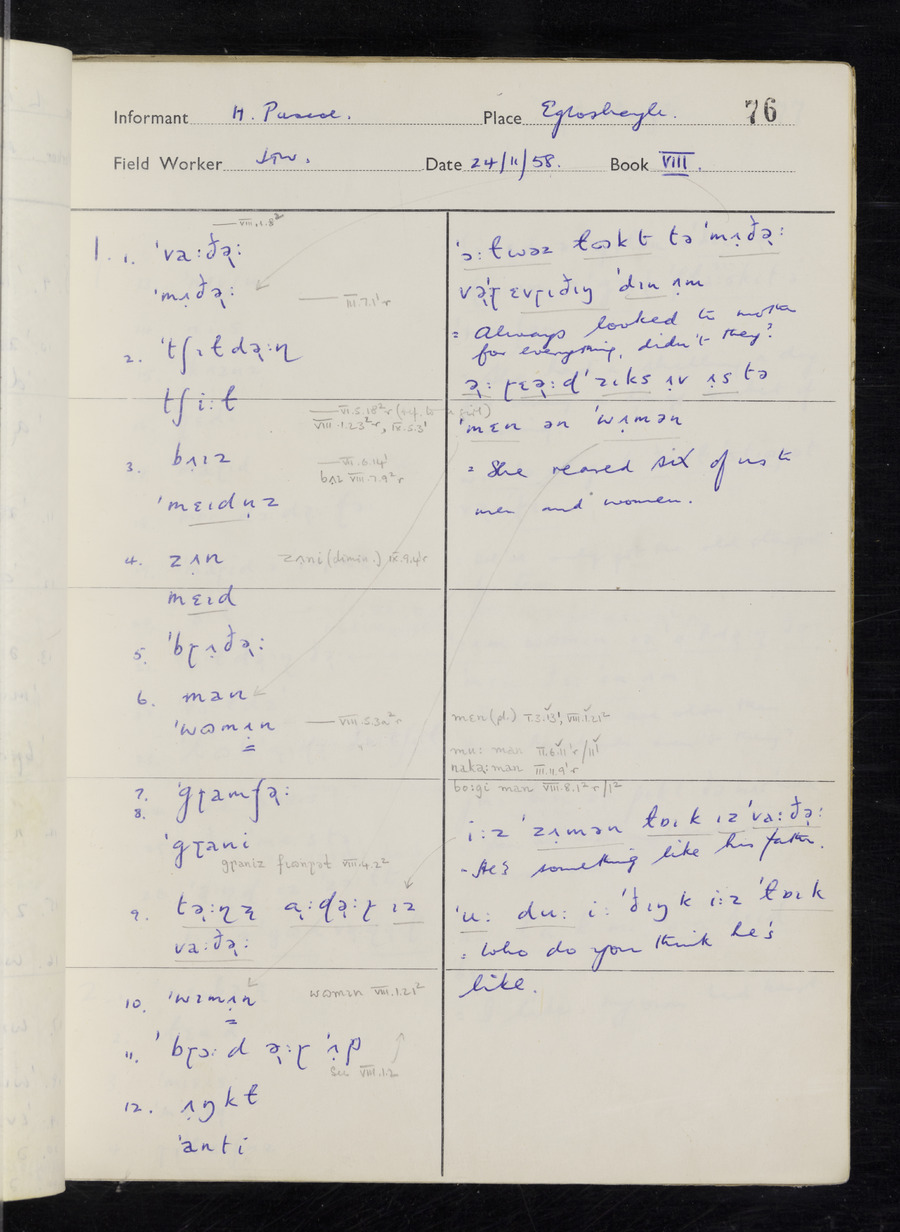 Informant H. Pascoe. Place Egloshayle. 76
Field Worker Date 24/11/58. Book VIII.
VIII.1.8²
1. 1. ˈvaːðə̣ː
ˈmʌ̣ðə̣ː III.7.1ʹr
2. ˈtʃɪldə̣ːṇ
tʃiːɫ
VI.5.18²r (ref. to a girl)
VIII.1.23²r, IV.5.3ʹ
3. bʌɪz VI.6.14ʹ
bʌɪ VIII.7.9²r
ˈmɛɪdṇz
4. zʌn zʌni (dimin.) IX.9.4ʹr
mɛɪd
5. ˈbɽʌ̣ðə̣ː
6. man
ˈwʊmɪ̣n VIII.5.3a²r
7.
8. ˈgɽamfə̣ː
ˈgɽani
gɽaniz VIII.4.2²
9. tə̣ːṇẓ ɑ̣ːɖə̣ːɽ ɪz
vaːðə̣ː
10. ˈwɪmɪ̣n womɪn VIII.1.21²
11. ˈbɽɔːd ə̣ːɽ ˈʌ̣p
See VIII.1.2
12. ʌ̣ŋkɫ
ˈanti
ˈɔːɫwəz ɫʊkt tə ˈmʌ̣ðə̣ː
və̣ɽ ɛvɽɪðɪŋ ˈdɪn ʌ̣m
= Always looked to mother
for everything, didn't they?
ə̣ː ɽɛə̣ːd ˈzɪks ʌ̣v ʌ̣s tə
ˈmɛn ən ˈwɪ̣mən
= She reared six of us to
men and women.
mɛn (pl.) I.3.13ʹ, VIII.1.21²
muː man II.6.11ʹr/11ʹ
nakə̣ːman III.11.9ʹr
boːgi man VIII.8.1²r/1²
iːz ˈzʌ̣mən ɫɒɪk ɪz ˈvaːðə̣ː
= He's something like his father.
ˈuː duː iː ˈðɪŋk iːz ˈɫɒɪk
= Who do you think he's
like.